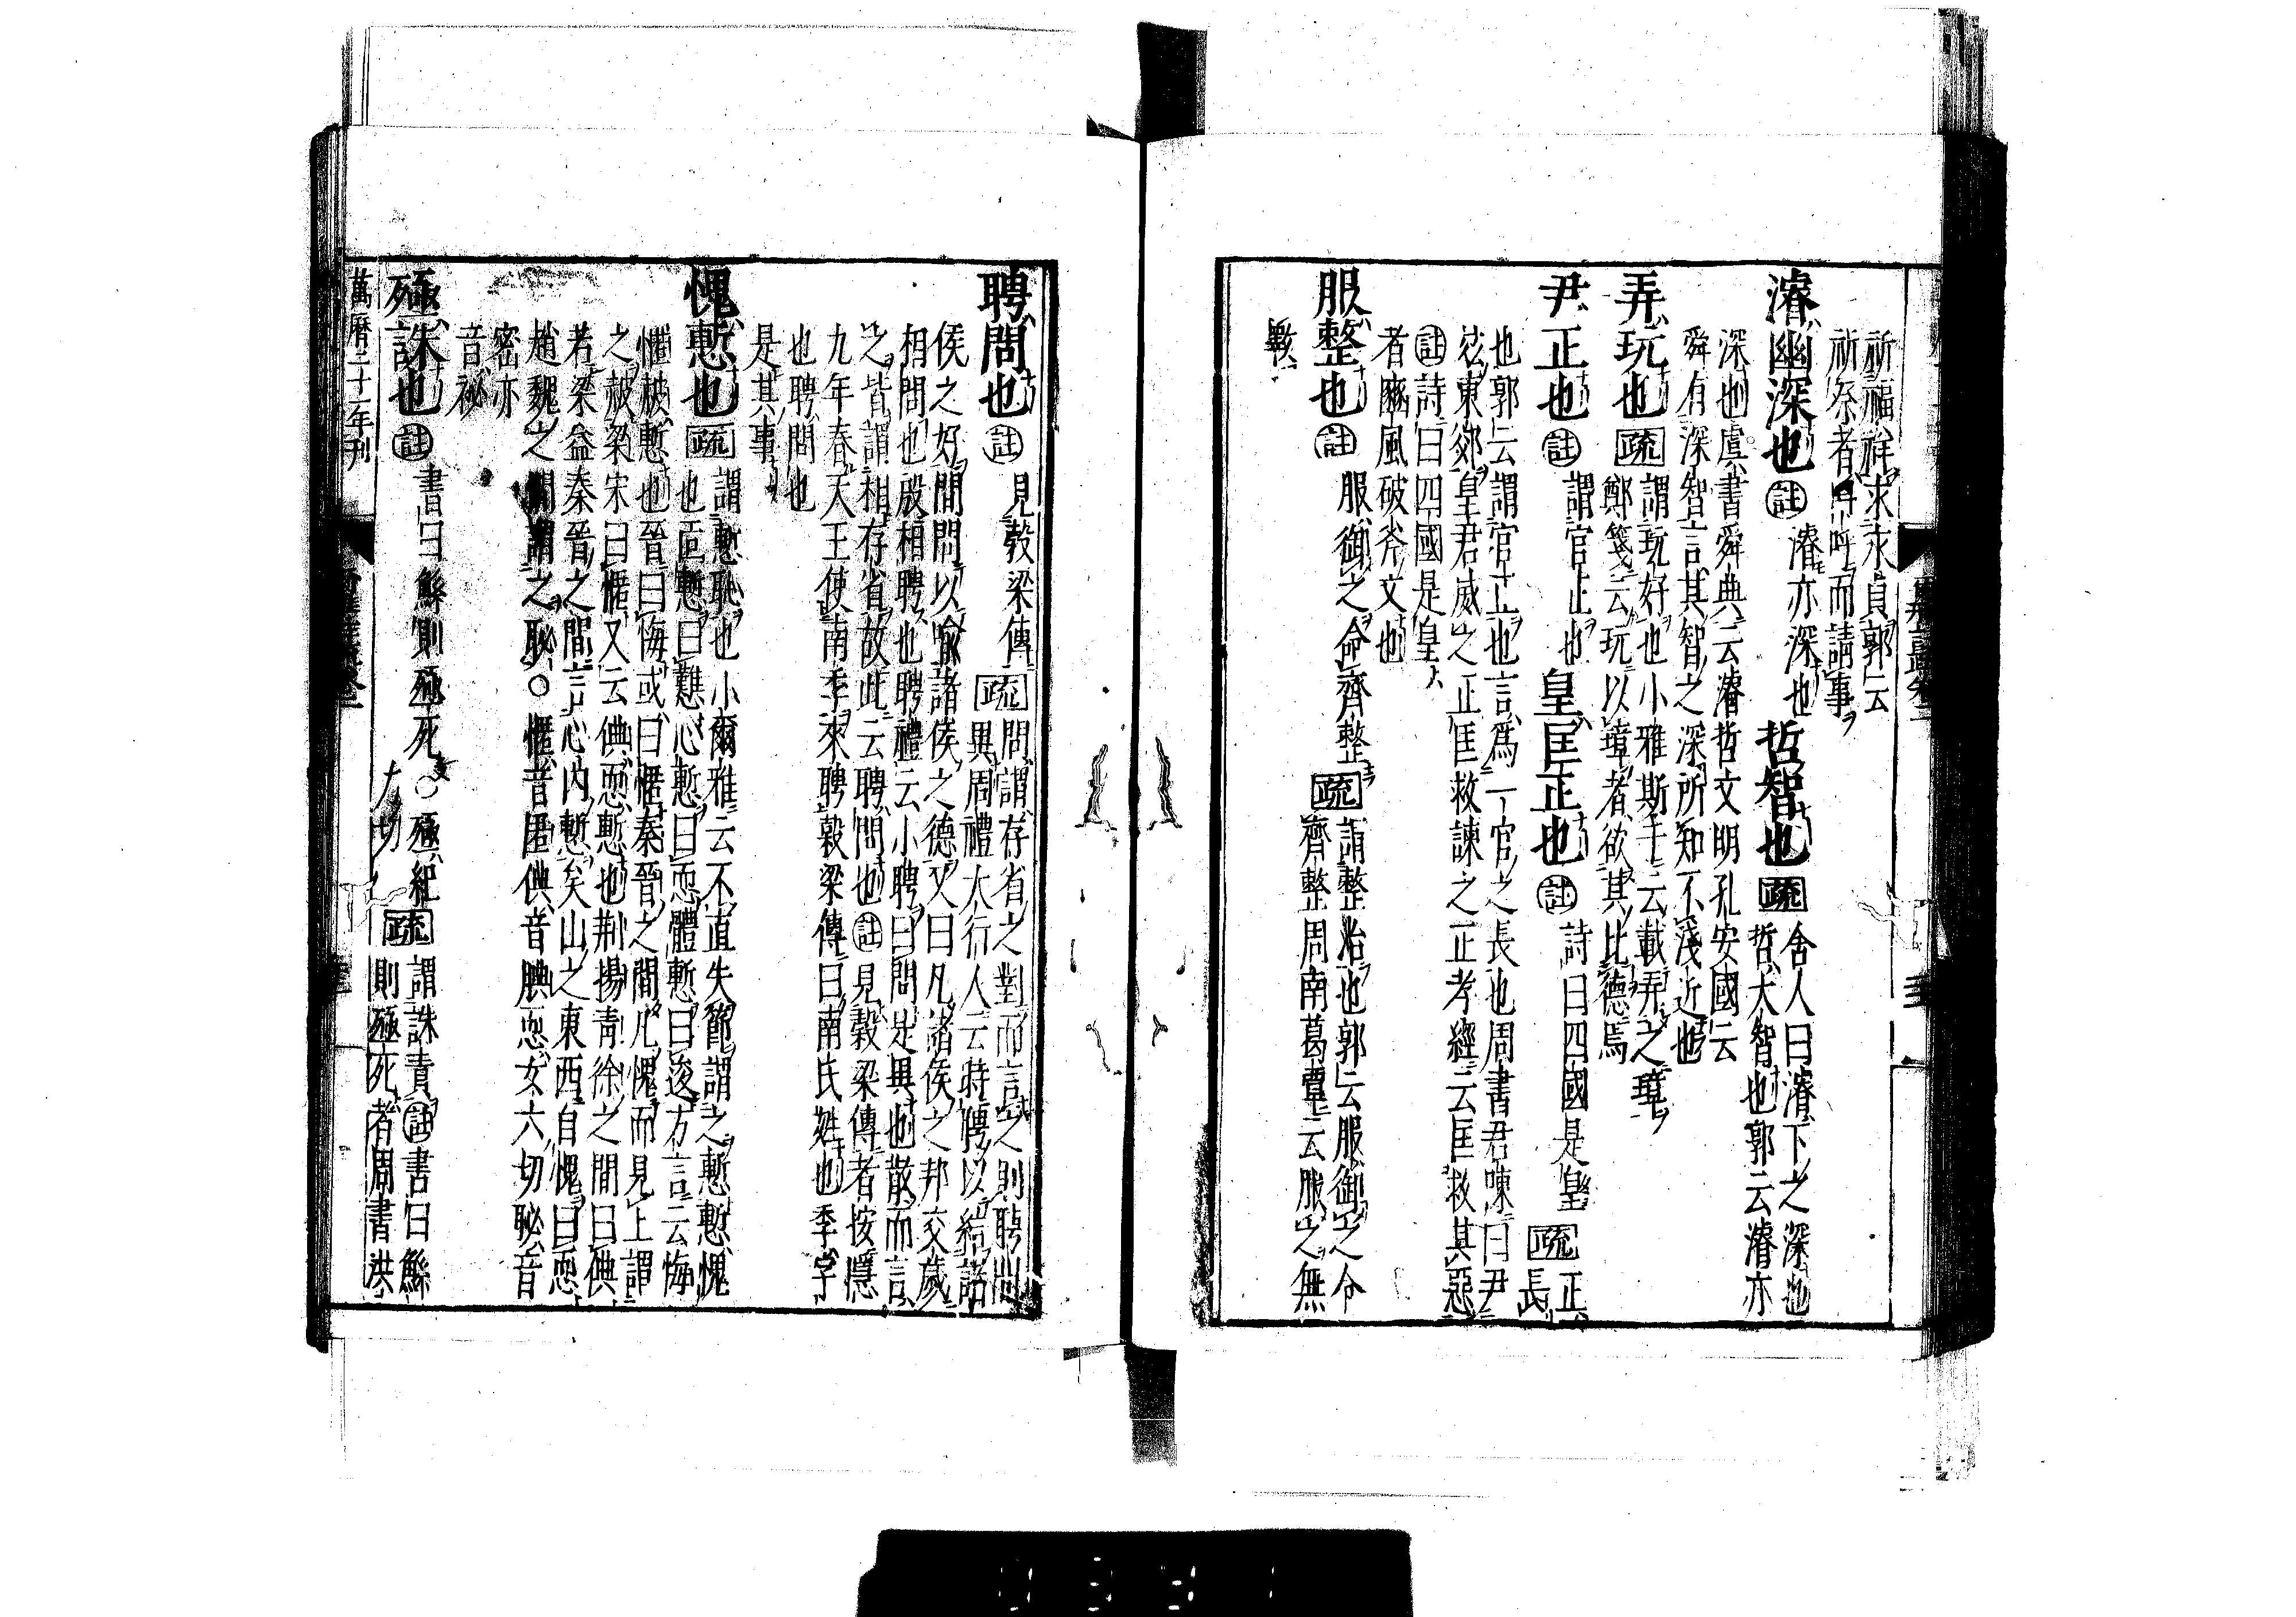 祈福祥求永貞郭云
祈祭者呼而請事
濬幽深也註濬亦深也哲智也疏舍人曰濬下之深也
哲大智也郭云濬亦
深也虞書舜典云濬哲文明孔安國云
舜有深智言其智之深所知不淺近也
弄玩也疏謂玩好也小雅斯干云載弄之璋
鄭箋云玩以璋者欲其比德焉
尹正也註謂官正也皇匡正也註詩曰四國是皇疏正
長
也郭云謂官正也言為一官之長也周書君陳曰尹
茲東郊皇君威之正匡救諫之正孝經云匡救其惡
註詩曰四國是皇
者豳風破斧文也
服整也註服御之令齊整疏謂整治也郭云服御之令
齊整周南葛覃云服之無
斁
聘問也註見穀梁傳疏問謂存省之對而言之則聘問
異周禮大行人云時聘以結諸
侯之好間問以喻諸侯之德又曰凡諸侯之邦交歲
相問也殷相聘也聘禮云小聘曰問是異也散而言
之皆謂相存省故此云聘問也註見穀梁傳者按隱
九年春天王使南季來聘穀梁傳曰南氏姓也季字
也聘問也
是其事
愧慙也疏謂慙恥也小爾雅云不直失節謂之慙慙愧
也面慙曰戁心慙曰恧體慙曰逡方言云悔
㥏赧慙也晉曰悔或曰㥏秦晉之間凡愧而見上謂
之赧梁宋曰㥏又云㥏恧慙也荊揚青徐之間曰㥏
若梁益秦晉之間言心內慙矣山之東西自愧曰恧
趙魏之間謂之㥏○㥏音匿㥏音腆恧女六切㥏音
密亦
音祕
殛誅也註書曰鯀則殛死○殛紀力切疏謂誅責註書曰鯀
則殛死者周書洪
萬曆二十一年刊